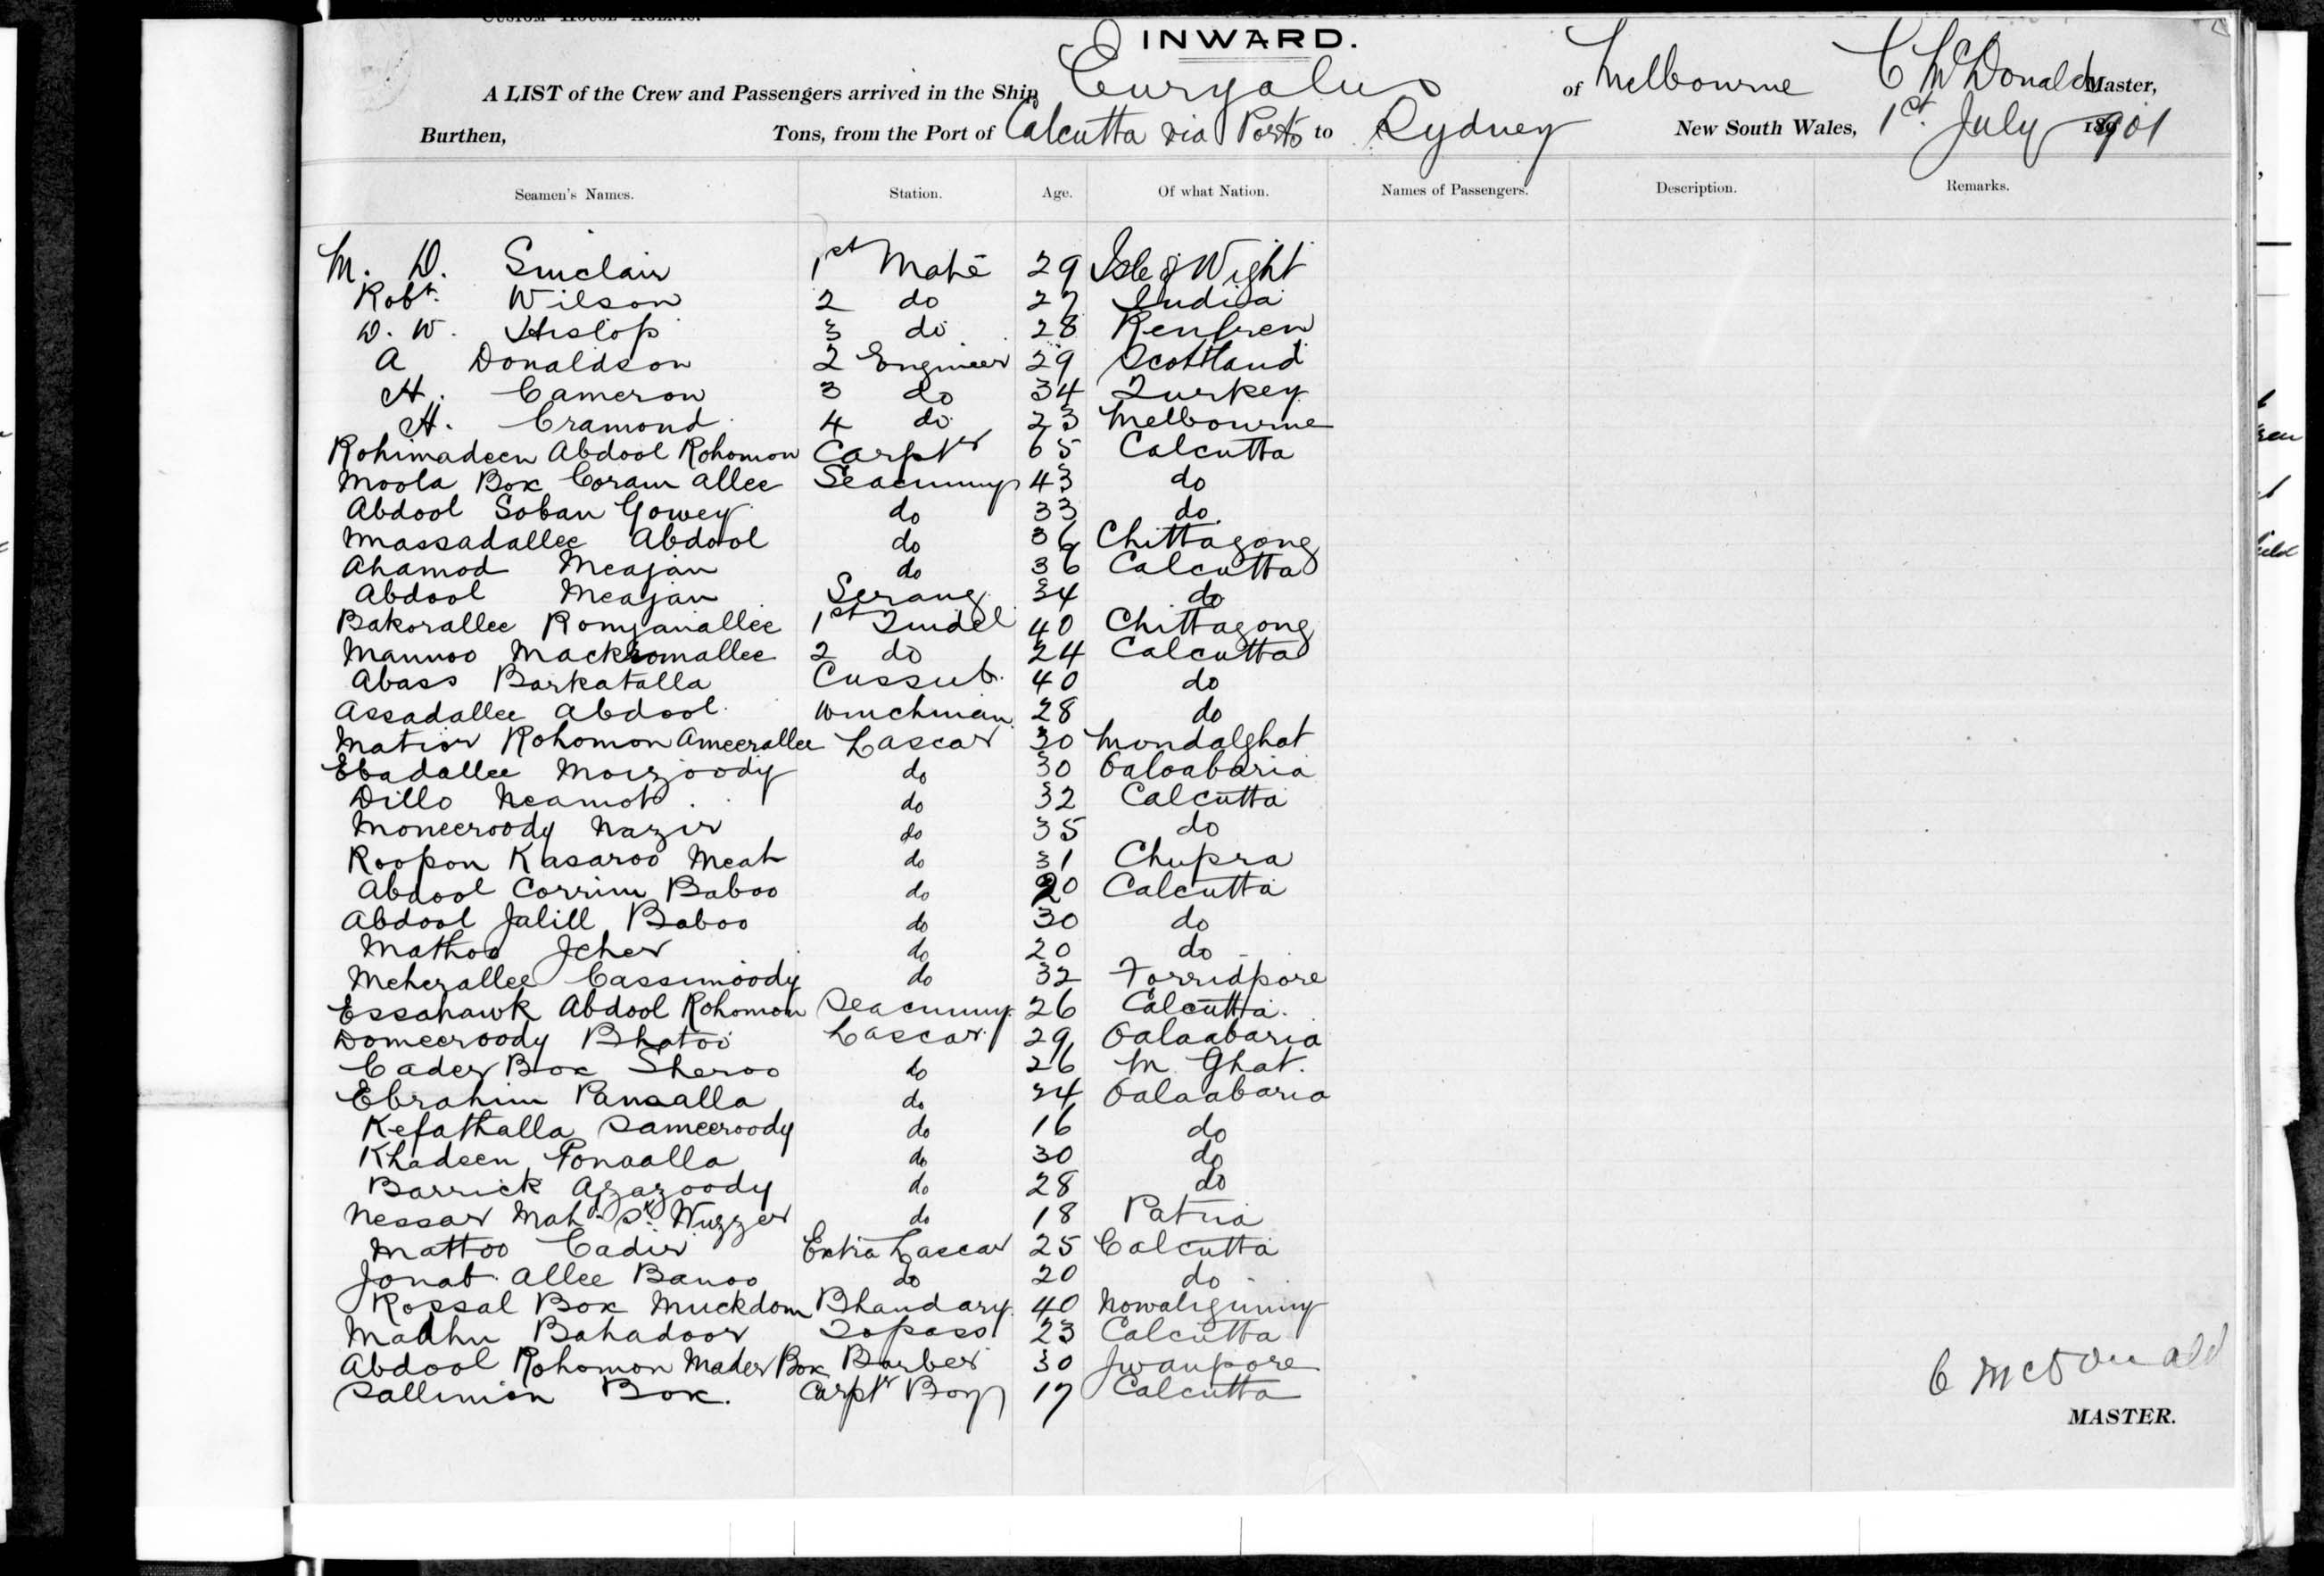 INWARD.
A LIST of the Crew and Passengers arrived in the Ship Euryalus of Melbourne C McDonald Master,
Burthen, Tons, from the Port of Calcutta via Ports to Sydney New South Wales, 1st July 1901
Seamen's Names. Station. Age. Of what Nation. Names of Passengers. Description. Remarks.
M. D. Sinclair 1st Mate 29 Isle of Wight
Robt. Wilson 2 do 27 India
D. W. Hislop 3 do 28 Renfrew
A Donaldson 2 Engineer 29 Scotland
H. Cameron 3 do 34 Turkey
H. Cramond 4 do 23 Melbourne
Rohimadeen Abdool Rohomon Carptr 65 Calcutta
Moola Box Coram allee Seacunny 43 do
Abdool Soban Gowey do 33 do
Massadallee Abdool do 36 Chittagong
Ahamod Meajan do 36 Calcutta
Abdool Meajan Serang 34 do
Bakorallee Romjanallee 1st Tindel 40 Chittagong
Mannoo Mackromallee 2 do 24 Calcutta
Abass Barkatalla Cussub. 40 do
Assadallee Abdool Winchman 28 do
Matior Rohomon Ameerallee Lascar 30 Mondalghat
Ebadallee Moizoody do 30 Oaloabaria
Dillo Neamot do 32 Calcutta
Moneeroody Nazir do 35 do
Roopon Kasaroo Meah do 31 Chupra
Abdool Corrim Baboo do 20 Calcutta
Abdool Jalill Baboo do 30 do
Mathoo Jcher do 20 do
Meherallee Cassimoody do 32 Forridpore
Essahawk Abdool Rohomon Seacunny 26 Calcutta.
Domeeroody Bhatoo Lascar 29 Oalaabaria
Cader Box Sheroo do 26 M. Ghat.
Ebrahim Pansalla do 24 Oalaabaria
Kefathalla Sameeroody do 16 do
Khadeen Ponaalla do 30 do
Barrick Azazoody do 28 do
Nessar Mahd. Sk. Wuzzer do 18 Patna
Mattoo Cadir Extra Lascar 25 Calcutta
Jonab Allee Banoo do 20 do
Rossal Box Muckdom Bhandary 40 
Madhu Bahadoor Topass 23 Calcutta
Abdool Rohomon Mader Box Barber 30 Jwanpore
Sallimon Box. Carptr Boy 17 Calcutta
C McDonald
MASTER.